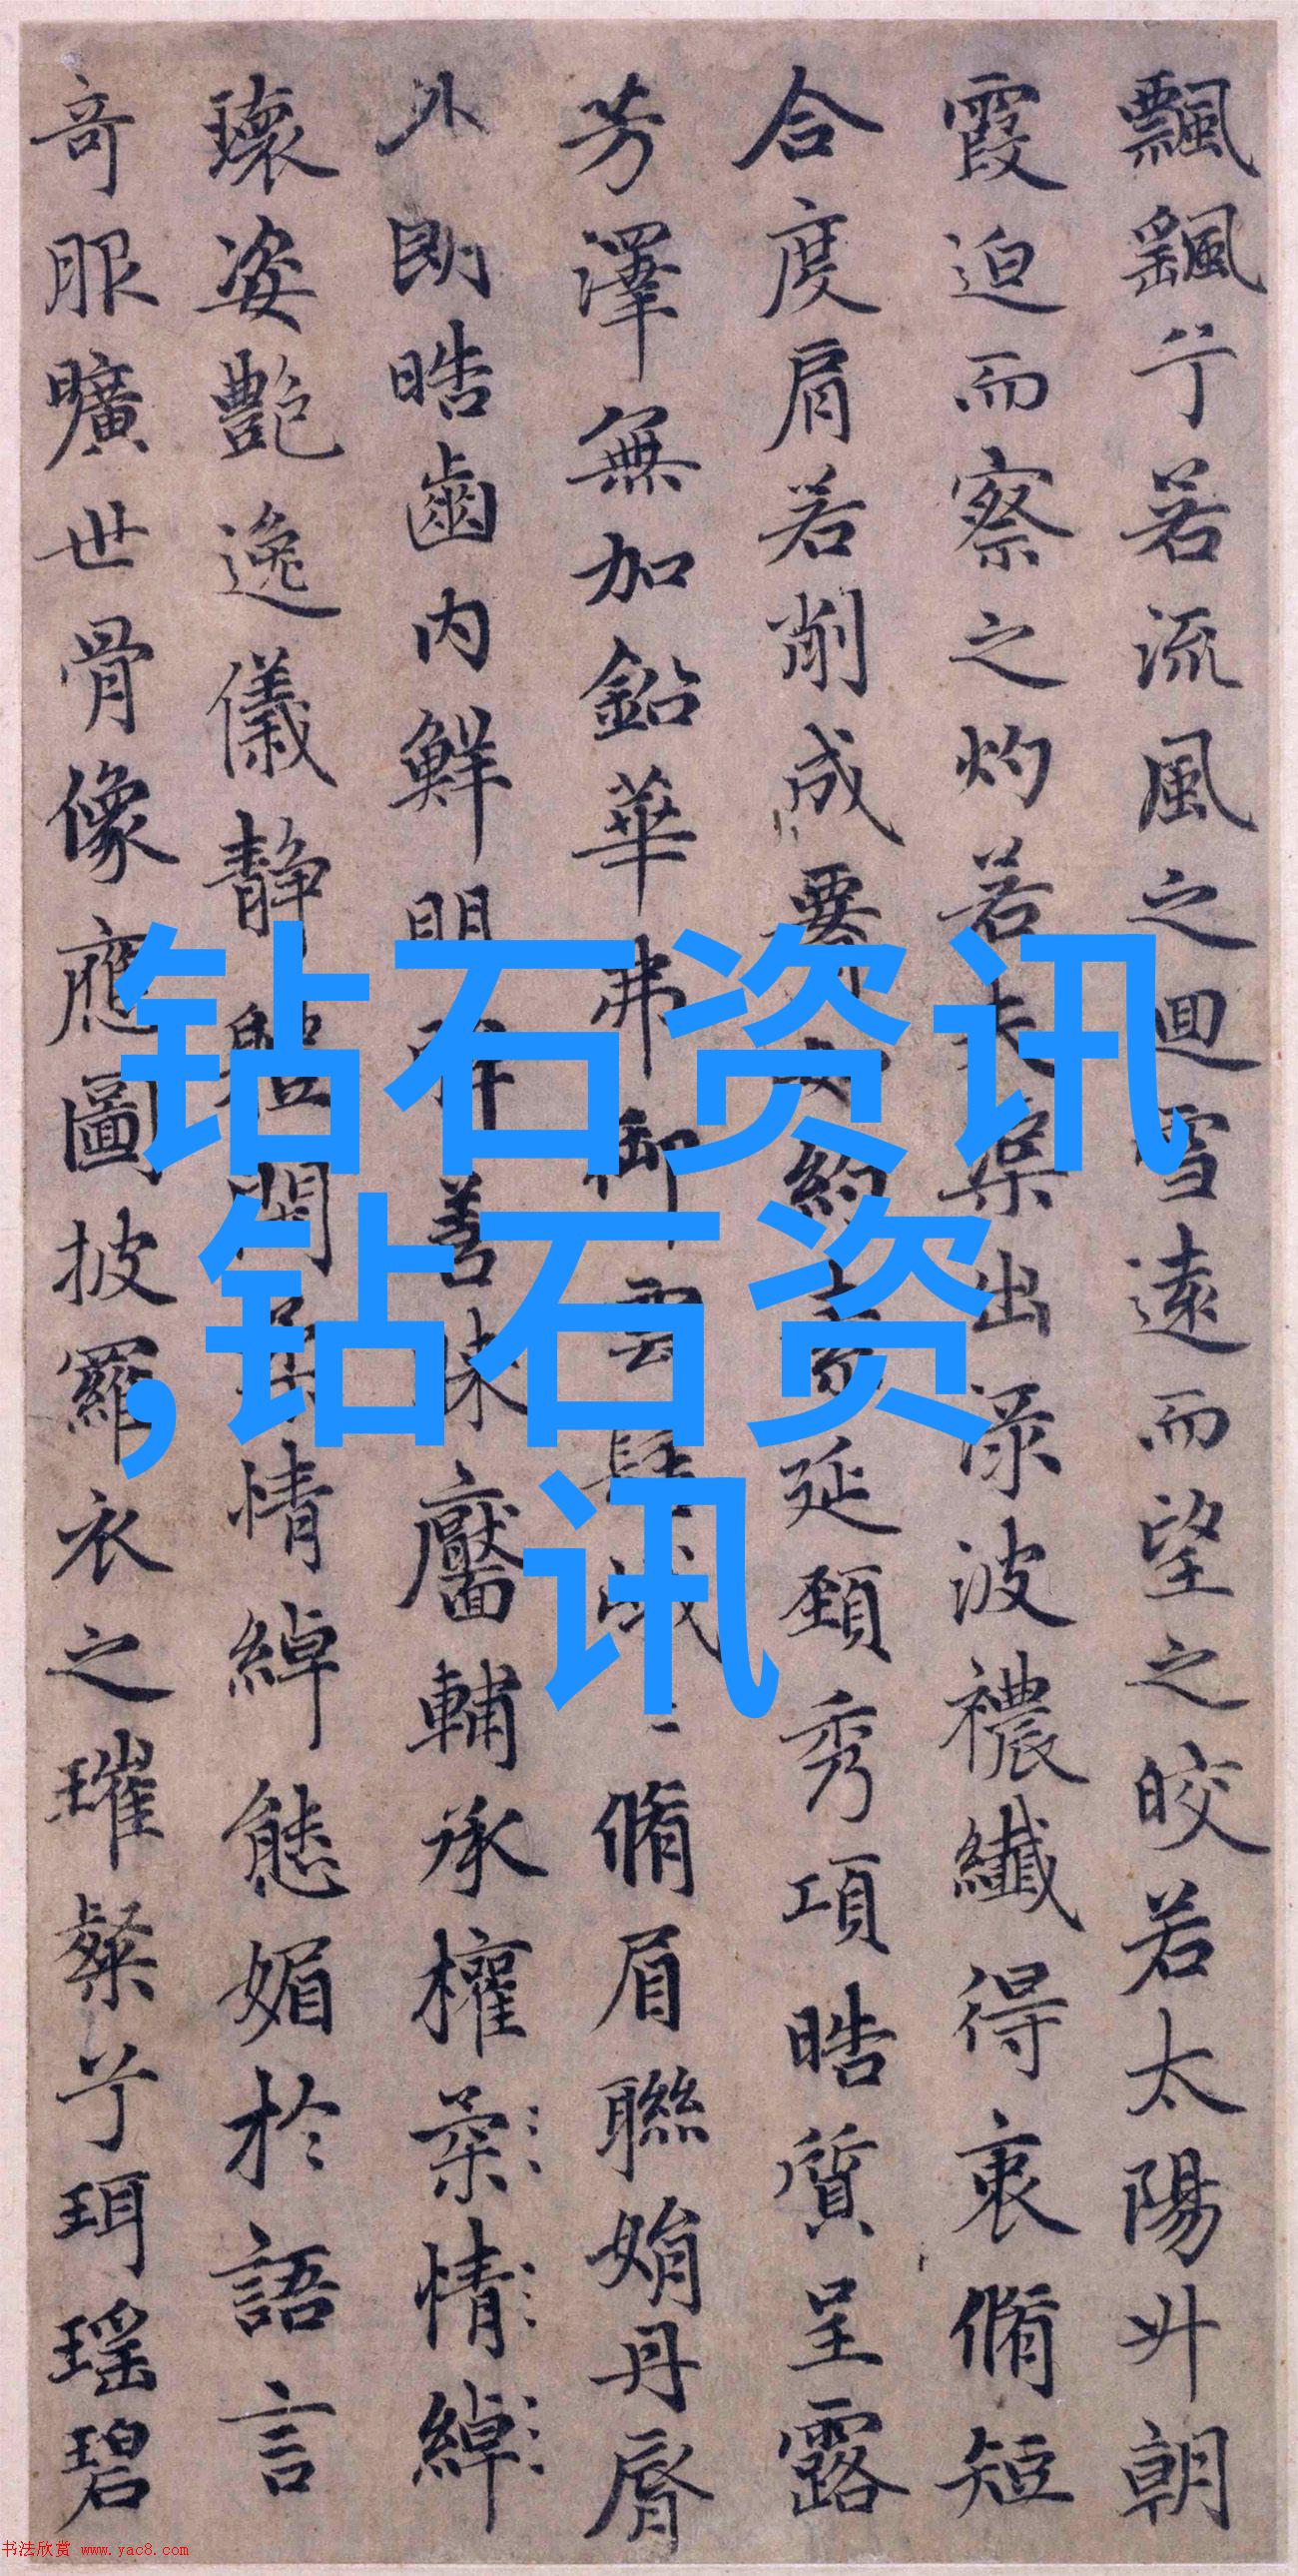 飄飖兮若流風之迴雪遠而望之皎若太陽升朝
霞迫而察之灼若夫蕖出渌波襛纖得衷脩短
合度肩若削成要約素延頸秀項皓質呈露
芳澤無加鉛華弗御雲脩眉聯娟丹脣
外朗皓齒内鮮明善睞靨輔承權柔情綽
瓌姿艷逸儀静軆閑柔情綽態媚於語言
奇服曠世骨像應圖披羅衣之璀粲兮珥瑶碧
钻石资讯
,钻石资
讯
书法欣赏 www.yac8.com